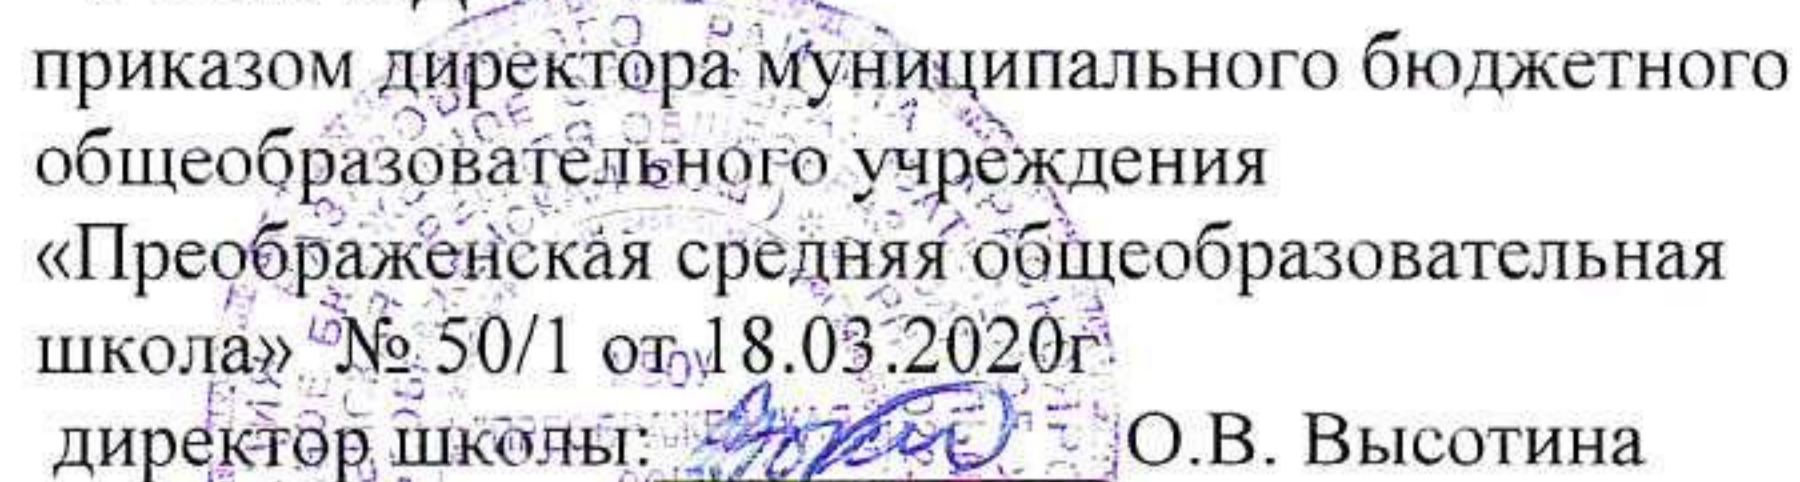 приказом директора муниципального бюджетного
общеобразовательного учреждения
«Преображенская средняя общеобразовательная
школа» № 50/1 от 18.03.2020г
директор школы: О.В. Высотина